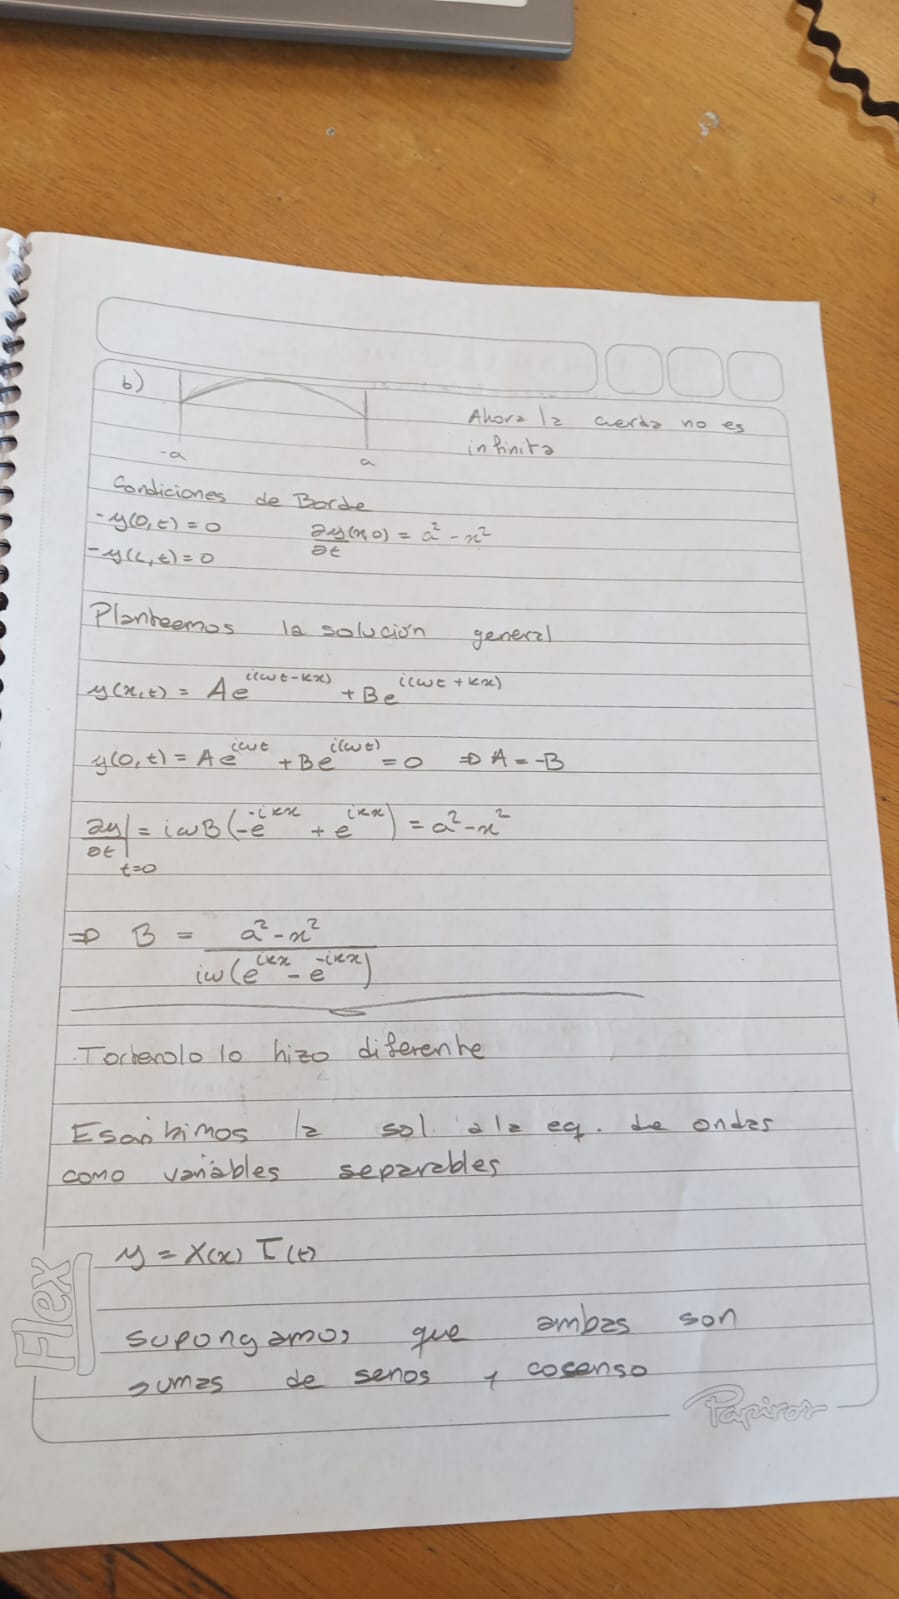 b)
Ahora la cuerda no es
infinita
-a
a
Condiciones de Borde
-y(0,t) = 0
∂y(x,0)/∂t = a² - x²
-y(L,t) = 0
Planteemos la solución general
y(x,t) = Ae^{i(ωt-kx)} + Be^{i(ωt+kx)}
y(0,t) = Ae^{iωt} + Be^{i(ωt)} = 0 ⇒ A = -B
∂y/∂t|_{t=0} = iωB(-e^{-ikx} + e^{ikx}) = a² - x²
⇒ B = (a² - x²)/(iω(e^{ikx} - e^{-ikx}))
lo hizo diferente
Escribimos la sol. a la eq. de ondas
como variables separables
y = X(x) T(t)
supongamos que ambas son
sumas de senos y cosenso
Flex
Papiros